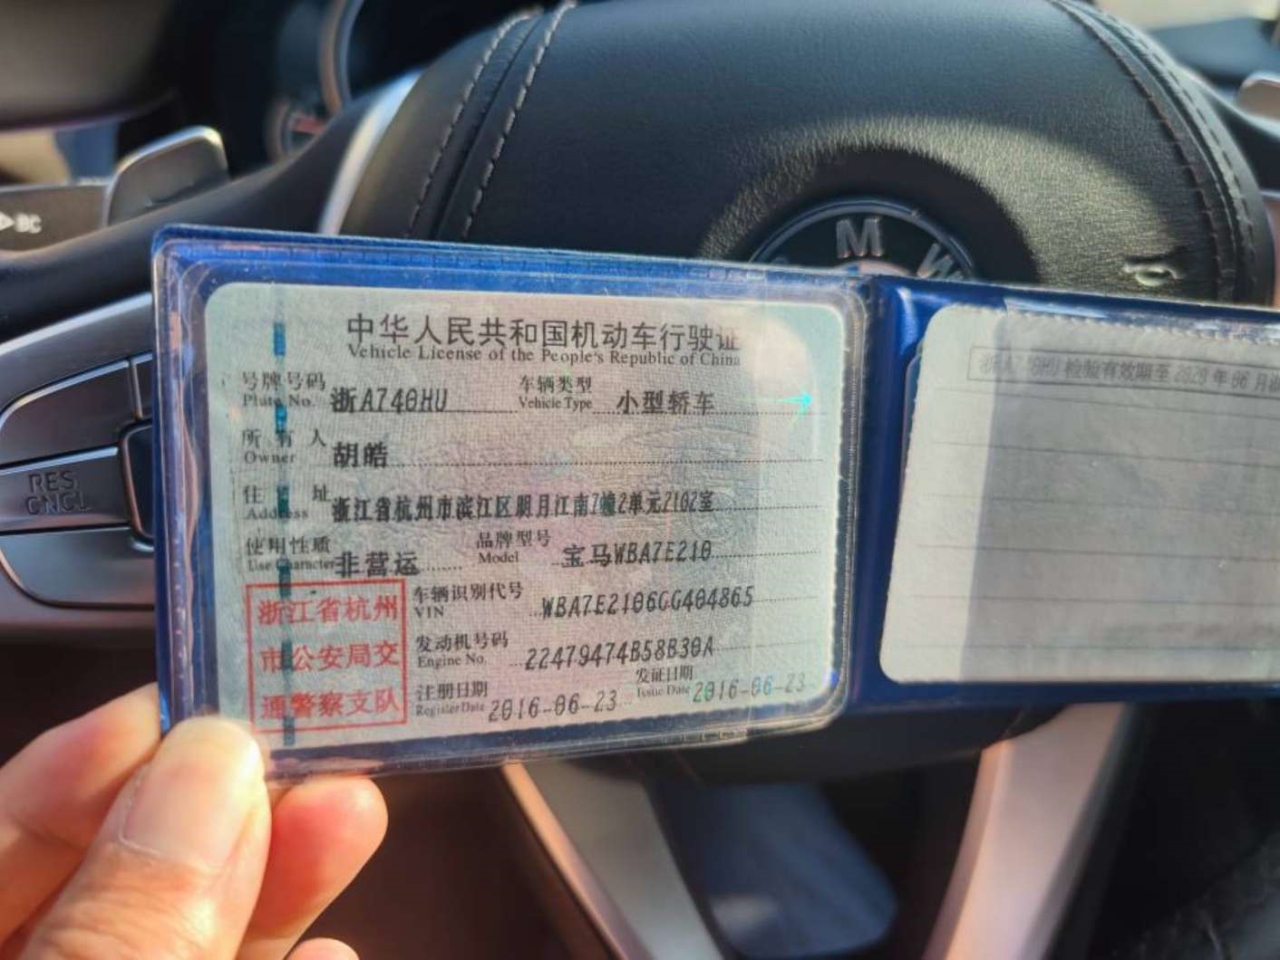 中华人民共和国机动车行驶证
Vehicle License of the People's Republic of China
号牌号码 浙A740HU 车辆类型 小型轿车
Plate No. Vehicle Type
所有人 胡皓
Owner
住址 浙江省杭州市滨江区明月江南7幢2单元2102室
Address
使用性质 非营运 品牌型号 宝马WBA7E210
Use Character Model
浙江省杭州
市公安局交
通警察支队
车辆识别代号 WBA7E2106GG404865
VIN
发动机号码 22479474B58B30A
Engine No.
注册日期 2016-06-23 发证日期 2016-06-23
Register Date Issue Date
检验有效期至
年06月
BC
RES
CNCL
M W